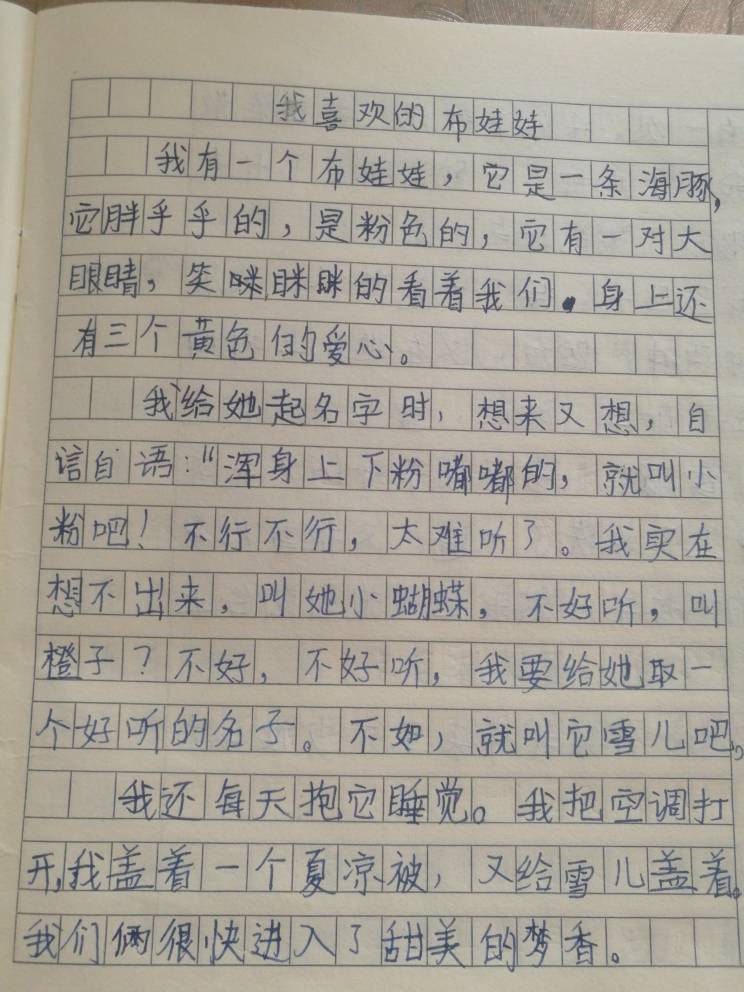 我喜欢的布娃娃
我有一个布娃娃，它是一条海豚，
它胖乎乎的，是粉色的，它有一对大
眼睛，笑咪眯眯的看着我们。身上还
有三个黄色的爱心。
我给她起名字时，想来又想，自
言自语：“浑身上下粉嘟嘟的，就叫小
粉吧！不行不行，太难听了。我实在
想不出来，叫她小蝴蝶，不好听，叫
橙子？不好，不好听，我要给她取一
个好听的名子。不如，就叫它雪儿吧，
我还每天抱它睡觉。我把空调打
开，我盖着一个夏凉被，又给雪儿盖着。
我们俩很快进入了甜美的梦香。